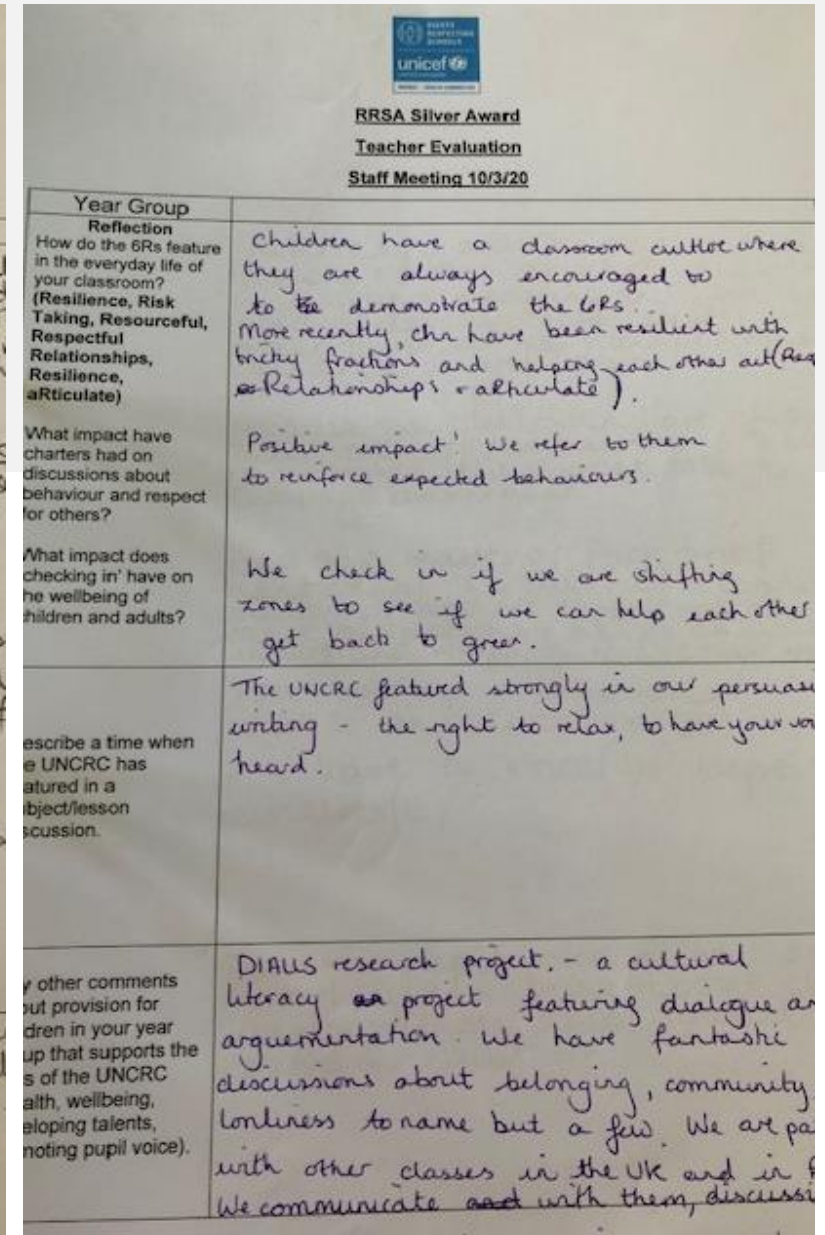 RIGHTS
RESPECTING
SCHOOLS
unicef
RRSA Silver Award
Teacher Evaluation
Staff Meeting 10/3/20
Year Group
Reflection
How do the 6Rs feature
in the everyday life of
your classroom?
(Resilience, Risk
Taking, Resourceful,
Respectful
Relationships,
Resilience,
aRticulate)
Children have a classroom culture where
they are always encouraged to
to be demonstrate the 6Rs.
More recently, chn have been resilient with
tricky fractions and helping each other out (Resp
Relationships + aRticulate).
What impact have
charters had on
discussions about
behaviour and respect
for others?
Positive impact! We refer to them
to reinforce expected behaviours.
What impact does
checking in' have on
he wellbeing of
hildren and adults?
We check in if we are shifting
zones to see if we can help each other
get back to green.
escribe a time when
e UNCRC has
atured in a
bject/lesson
scussion.
The UNCRC featured strongly in our persuasi
writing - the right to relax, to have your voi
heard.
y other comments
out provision for
dren in your year
up that supports the
s of the UNCRC
alth, wellbeing,
eloping talents,
moting pupil voice).
DIALLS research project. - a cultural
literacy project featuring dialogue an
arguementation. We have fantastic
discussions about belonging, community,
lonliness to name but a few. We are pa
with other classes in the UK and in
We communicate and with them, discussi